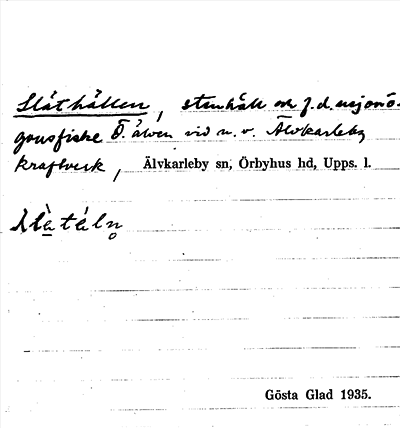 Slåthällen, stenhäll och f.d. nejonö-
gonsfiske Ö. älven vid n.v. Älvkarleby
kraftverk, Älvkarleby sn, Örbyhus hd, Upps. l.
Gösta Glad 1935.